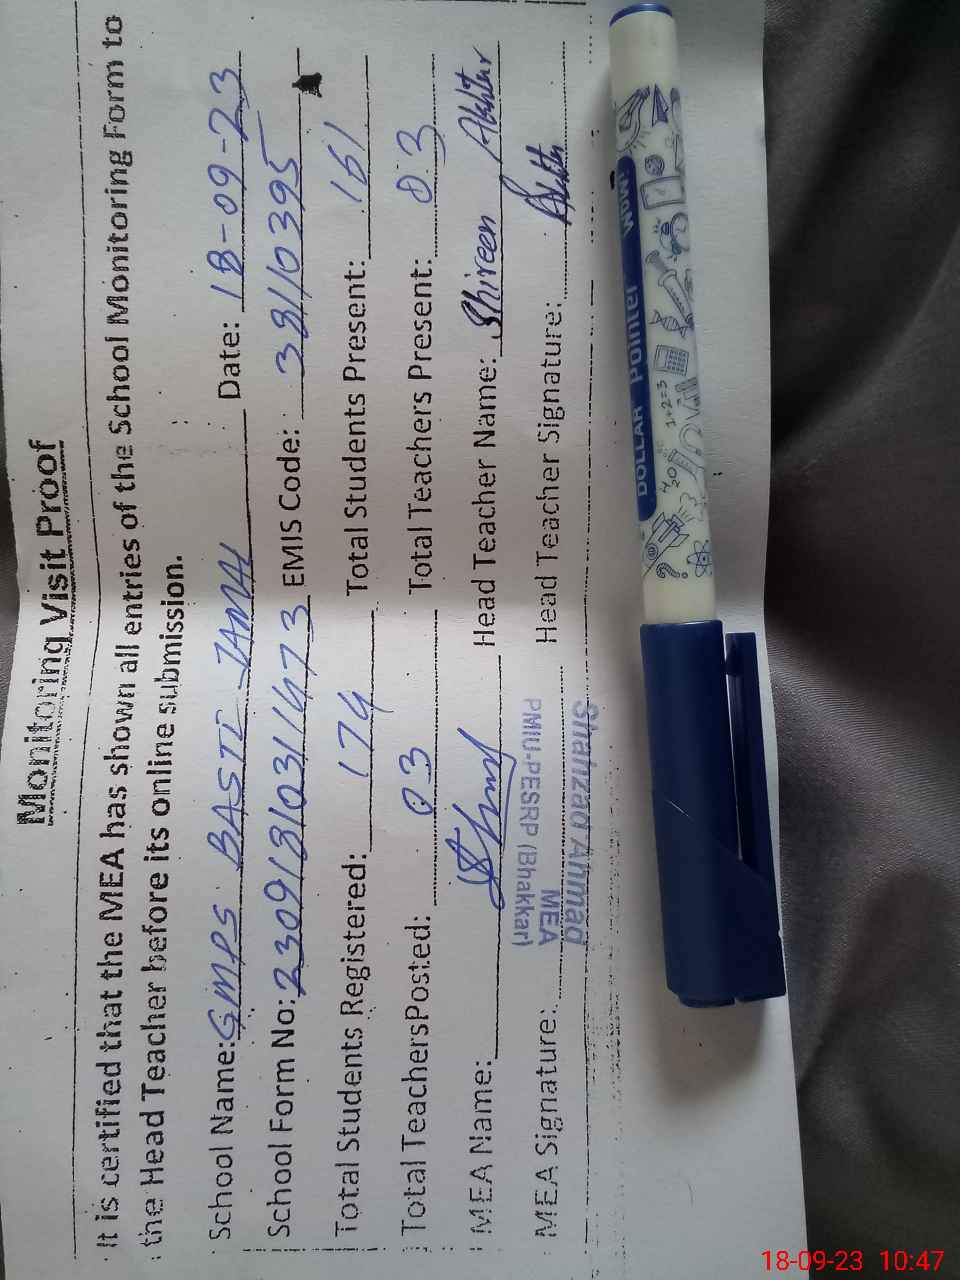 Monitoring Visit Proof
It is certified that the MEA has shown all entries of the School Monitoring Form to
the Head Teacher before its online submission.
School Name: GMPS BASTI JAMAL Date: 18-09-23
School Form No: 2309/3/1031/473 EMIS Code: 38110395
Total Students Registered: 174 Total Students Present: 161
Total TeachersPosted: 03 Total Teachers Present: 03
MEA Name: Head Teacher Name: Shireen Akhtar
MEA Signature: Head Teacher Signature:
Shahzad Ahmad
MEA
PMIU-PESRP (Bhakkar)
DOLLAR POINTER WOW!
1+2=3
18-09-23 10:47